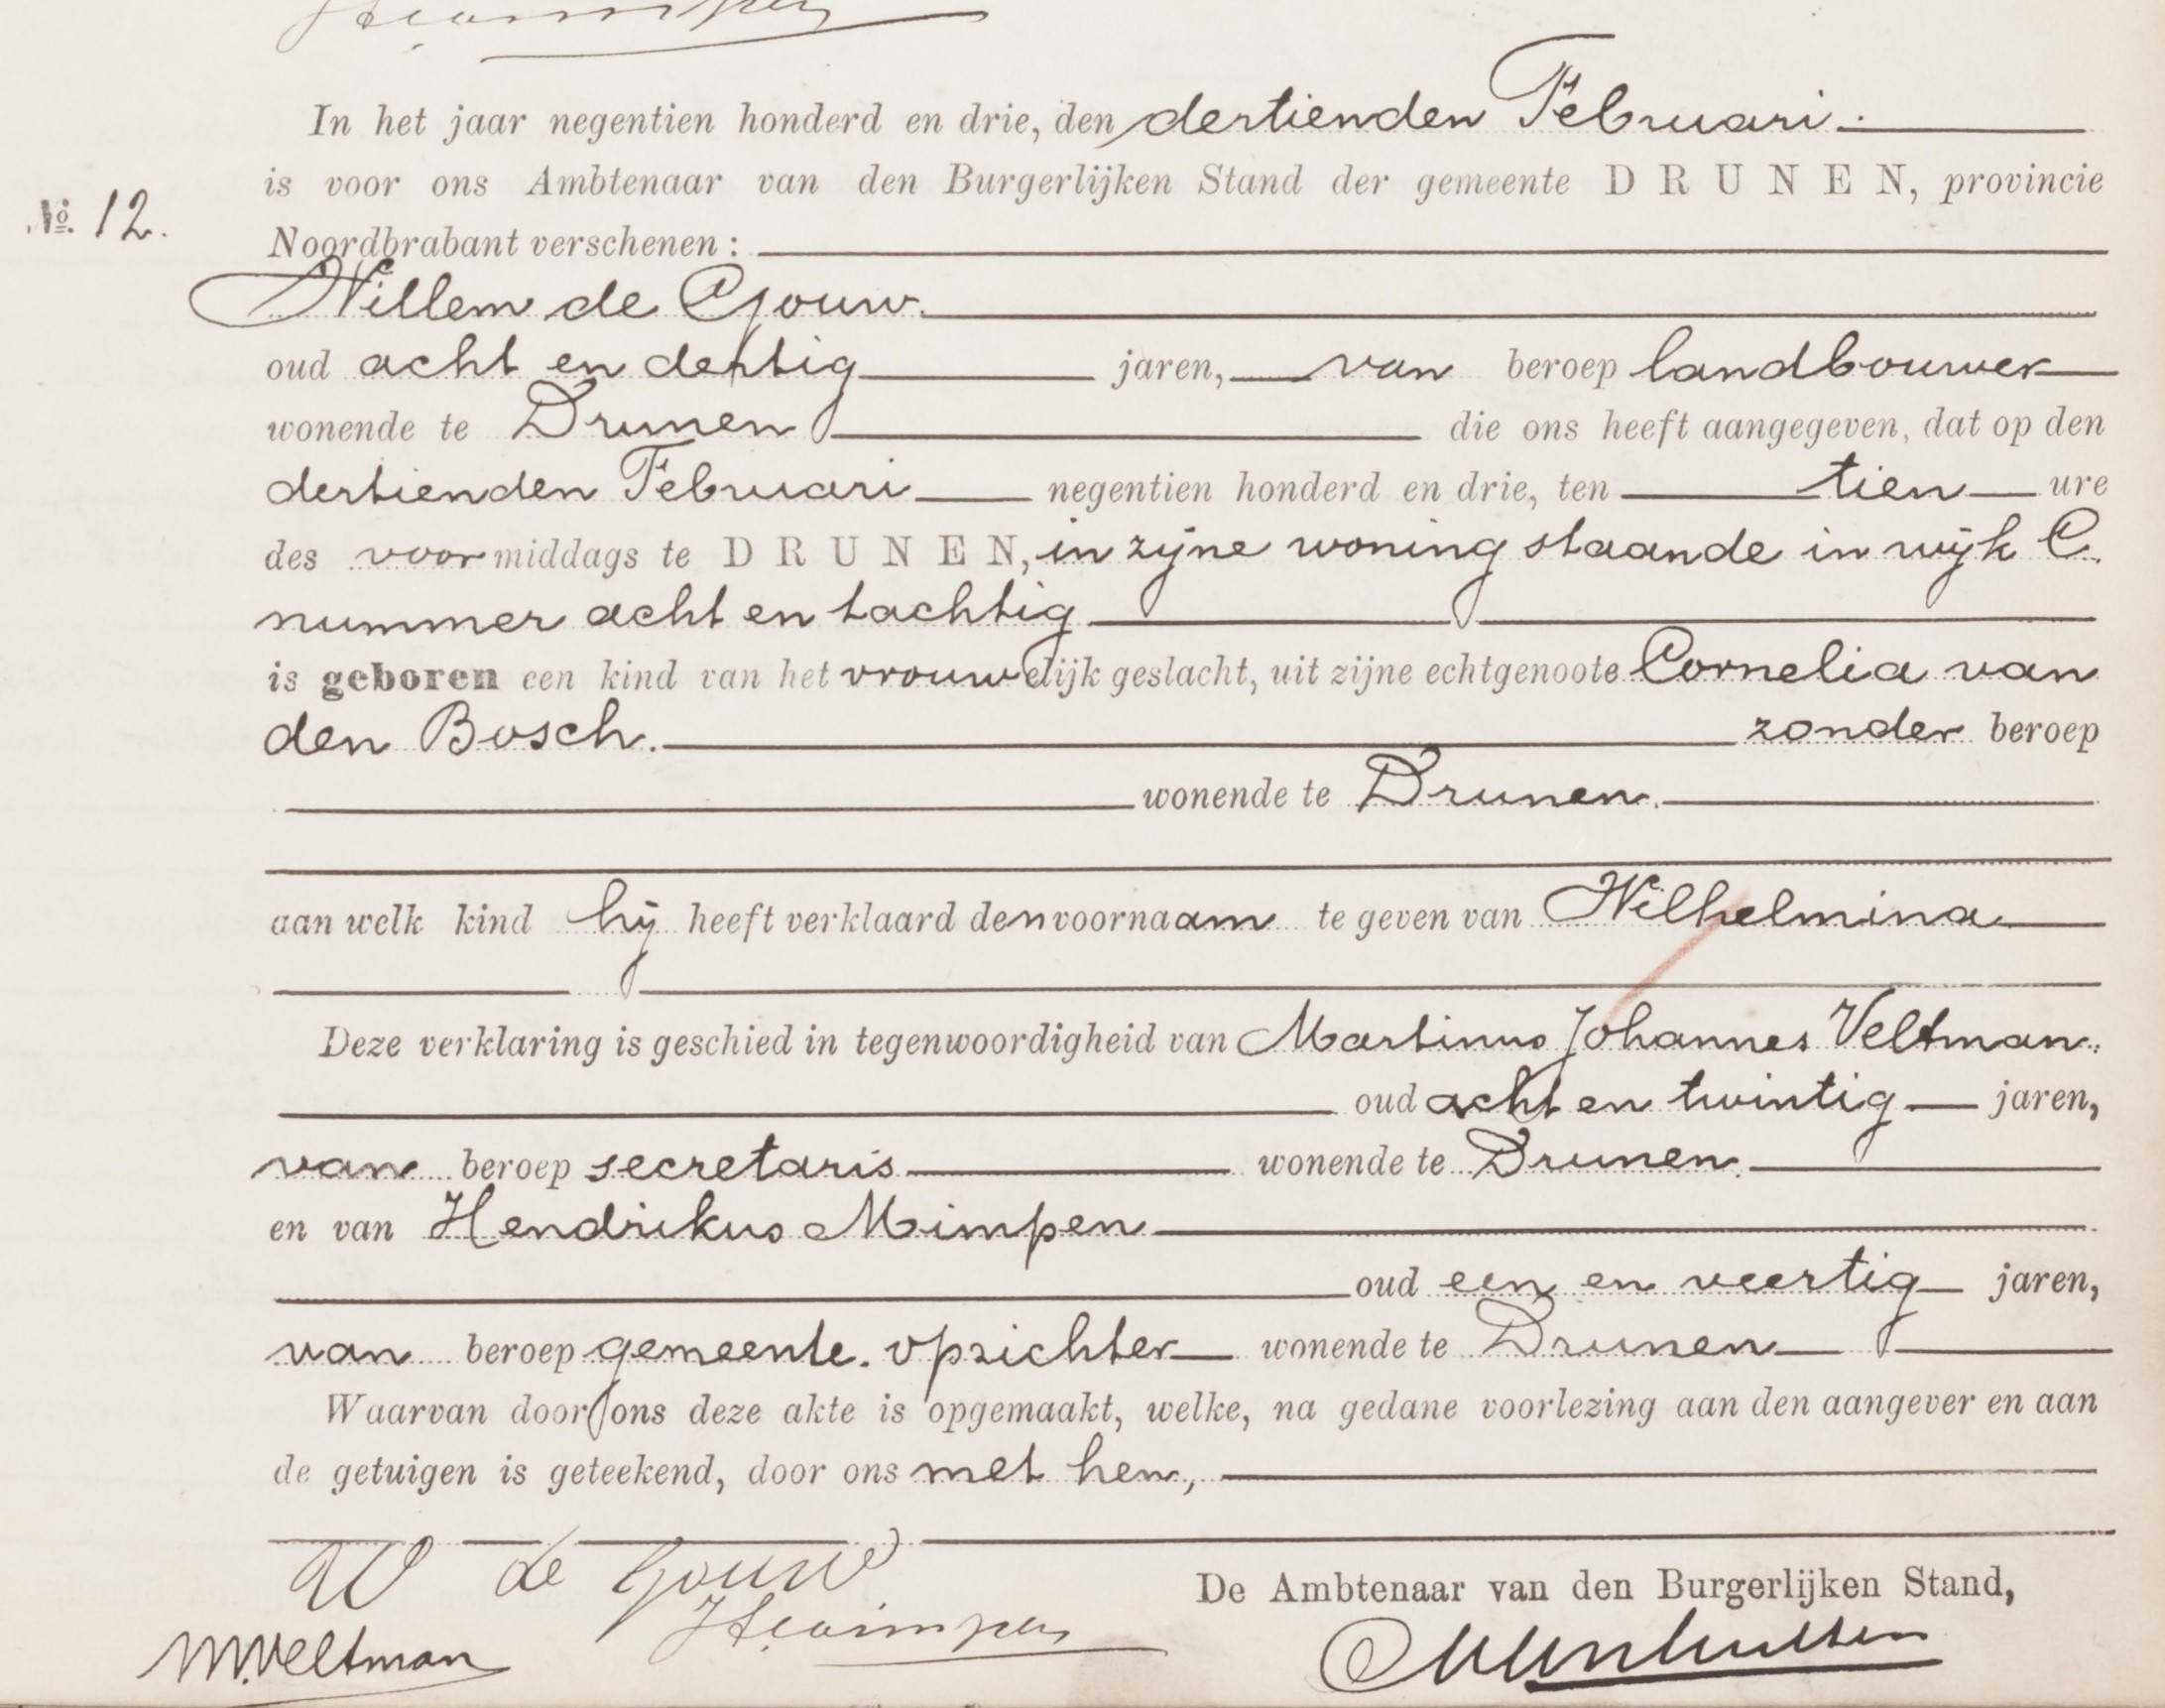 In het jaar negentien honderd en drie, den dertienden Februari.
is voor ons Ambtenaar van den Burgerlijken Stand der gemeente DRUNEN, provincie
No. 12.
Noordbrabant verschenen:
Willem de Gouw.
oud acht en dertig jaren, van beroep landbouwer
wonende te Drunen die ons heeft aangegeven, dat op den
dertienden Februari negentien honderd en drie, ten tien ure
des voormiddags te DRUNEN, in zijne woning staande in wijk C.
nummer acht en tachtig
is geboren een kind van het vrouwelijk geslacht, uit zijne echtgenoote Cornelia van
den Bosch. zonder beroep
wonende te Drunen.
aan welk kind hij heeft verklaard den voornaam te geven van Wilhelmina
Deze verklaring is geschied in tegenwoordigheid van Martinus Johannes Veltman.
oud acht en twintig jaren,
van beroep secretaris wonende te Drunen.
en van Hendrikus Mimpen
oud een en veertig jaren,
van beroep gemeente.opzichter wonende te Drunen
Waarvan door ons deze akte is opgemaakt, welke, na gedane voorlezing aan den aangever en aan
de getuigen is geteekend, door ons met hen,
W de Gouw
De Ambtenaar van den Burgerlijken Stand,
HMimpen
M.Veltman